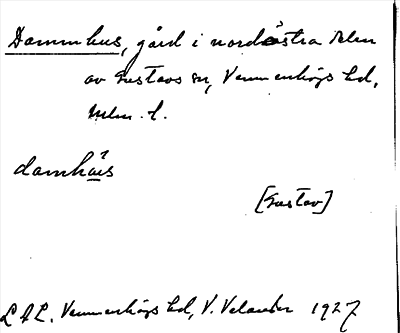 Dammhus, gård i nordöstra delen
av Gustavs sn, Vemmenhögs hd,
Mlm. l.
damhus
[Gustav]
L A L. Vemmenhögs hd, V. Velander 1927